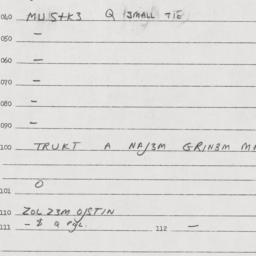 040 MUS+K3 Q 13MALL TIE
050 -
060 -
070 -
080 -
090 -
100 TRUKT A NA/3M GRIN3M MA
101 O
110 ZOL23M O/STIN
111 - $ a egl. 112 -